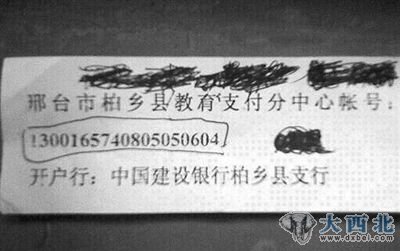 邢台市柏乡县教育支付分中心帐号：
13001657408050506​04
开户行：中国建设银行柏乡县支行
大西北
www.dxbei.com